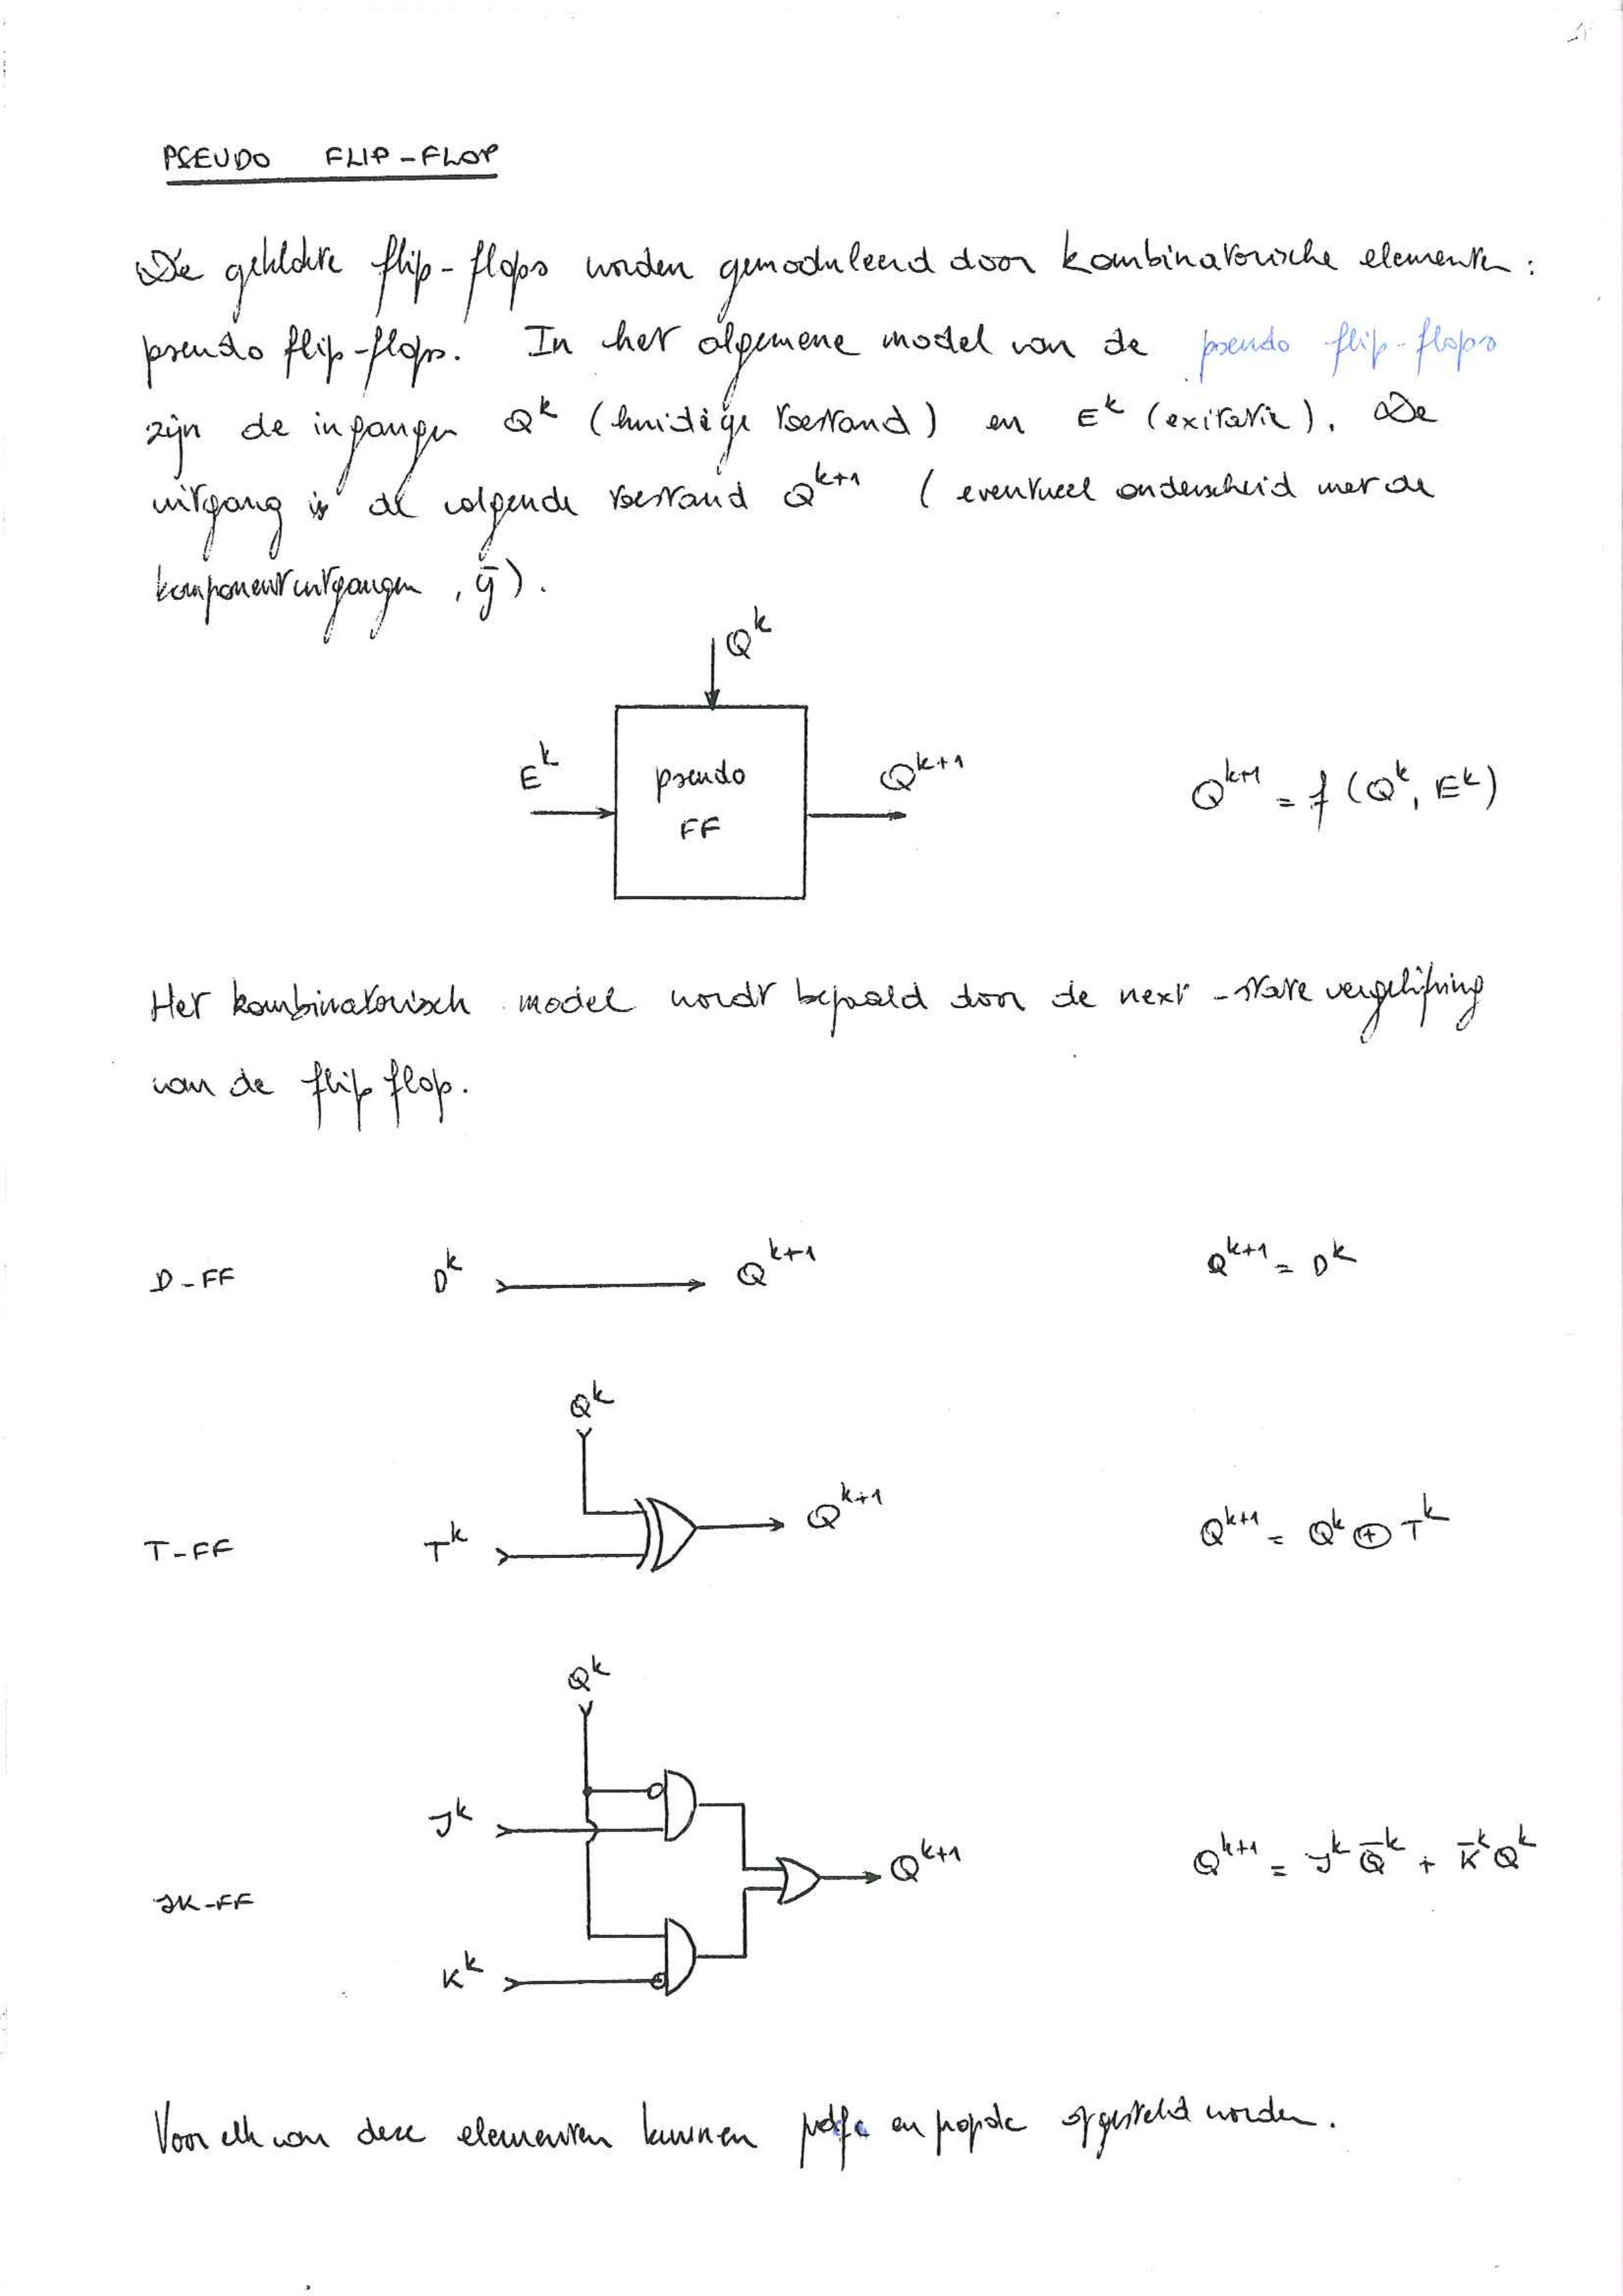 PSEUDO FLIP-FLOP
De geklokte flip-flops worden gemoduleerd door kombinatorische elementen :
pseudo flip-flops. In het algemene model van de pseudo flip-flops
zijn de ingangen Q^k (huidige toestand) en E^k (exitatie). De
uitgang is de volgende toestand Q^{k+1} (eventueel onderscheid met de
komponentuitgangen , ȳ).
Q^k
E^k pseudo Q^{k+1} Q^{k+1} = f (Q^k, E^k)
FF
Het kombinatorisch model wordt bepaald door de next-state vergelijking
van de flip flop.
D-FF D^k Q^{k+1} Q^{k+1} = D^k
Q^k
T-FF T^k Q^{k+1} Q^{k+1} = Q^k ⊕ T^k
Q^k
J^k
Q^{k+1} Q^{k+1} = J^k Q̄^k + K̄^k Q^k
JK-FF
K^k
Voor elk van deze elementen kunnen en opgesteld worden.